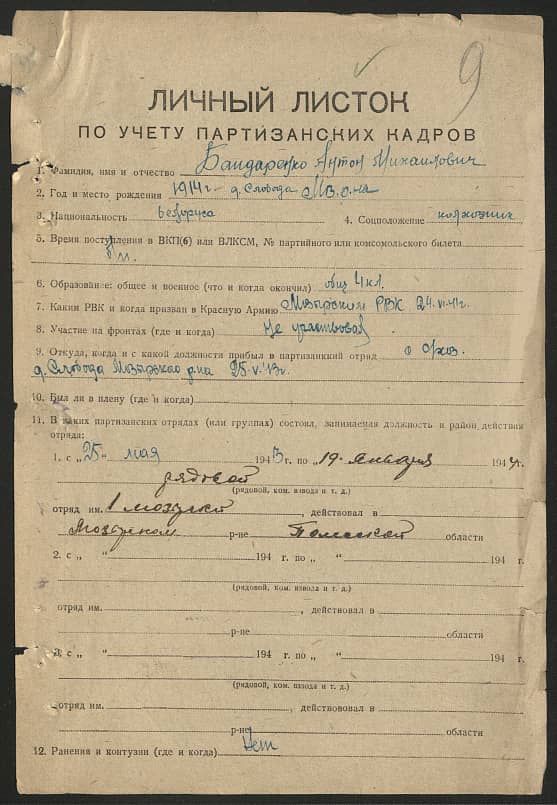 9
ЛИЧНЫЙ ЛИСТОК
ПО УЧЕТУ ПАРТИЗАНСКИХ КАДРОВ
1. Фамилия, имя и отчество Бандаренко Антон Михайлович
2. Год и место рождения 1914 г. д. Слобода М.р-на
3. Национальность белоруса 4. Соцположение колхозник
5. Время поступления в ВКП(б) или ВЛКСМ, № партийного или комсомольского билета
б/п.
6. Образование: общее и военное (что и когда окончил) общ 4 кл.
7. Каким РВК и когда призван в Красную Армию Мозырским РВК 24.VI.41г.
8. Участие на фронтах (где и когда) Не участвовал
9. Откуда, когда и с какой должности прибыл в партизанский отряд
д. Слобода Мозырскао р-на 25.V.43г.
10. Был ли в плену (где и когда)
11. В каких партизанских отрядах (или группах) состоял, занимаемая должность и район действия
отряда:
1. с „25“ мая 1943 г. по „19“ января 1944 г.
рядовой
(рядовой, ком. взвода и т. д.)
отряд им. 1 , действовал в
Мозырском р-не Полесской области
2. с „ “ 194 г. по „ “ 194 г.
(рядовой, ком. взвода и т. д.)
отряд им. , действовал в
р-не области
3. с „ “ 194 г. по „ “ 194 г.
(рядовой, ком. взвода и т. д.)
отряд им. , действовал в
р-не области
12. Ранения и контузии (где и когда) Нет